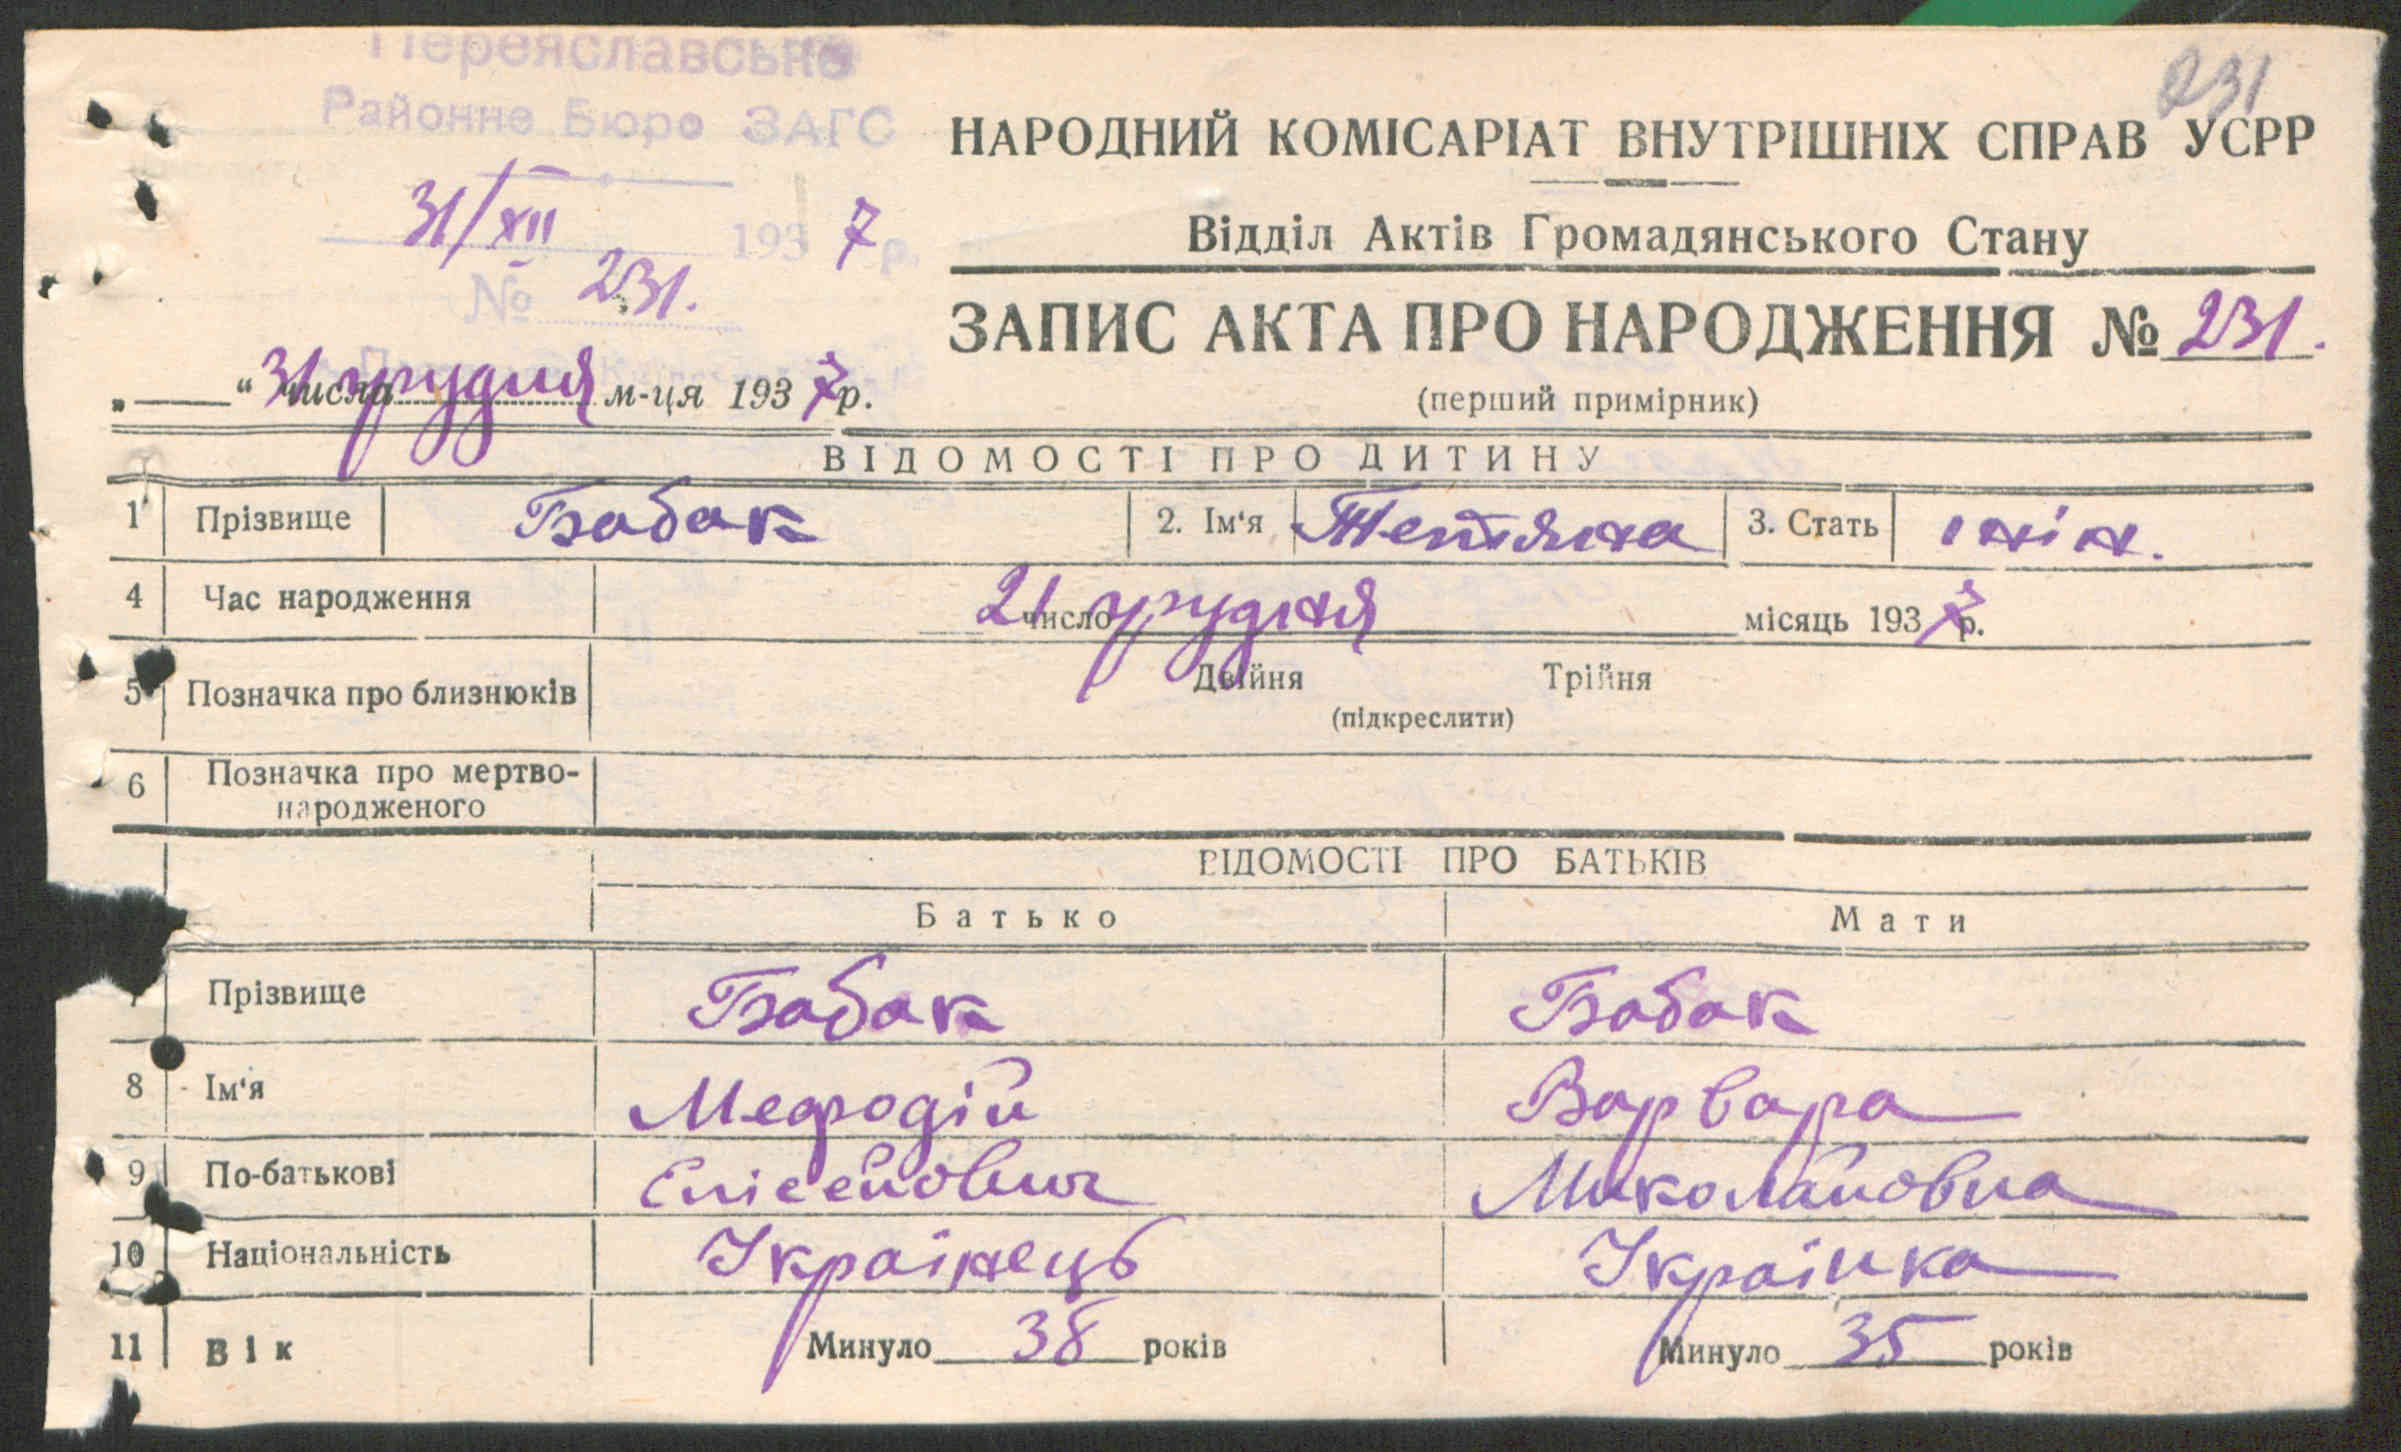 231
Переяславське
Районне Бюро ЗАГС
НАРОДНИЙ КОМІСАРІАТ ВНУТРІШНІХ СПРАВ УСРР
31/XII 1937 р.
Відділ Актів Громадянського Стану
№ 231.
ЗАПИС АКТА ПРО НАРОДЖЕННЯ № 231.
„ “ 31 числа грудня м-ця 1937 р.
(перший примірник)
ВІДОМОСТІ ПРО ДИТИНУ
1 Прізвище Бабак 2. Ім‘я Тетяна 3. Стать жін.
4 Час народження 21 число грудня місяць 1937 р.
5 Позначка про близнюків Двійня Трійня
(підкреслити)
6 Позначка про мертво-
народженого
ВІДОМОСТІ ПРО БАТЬКІВ
Батько Мати
7 Прізвище Бабак Бабак
8 Ім‘я Мефодій Варвара
9 По-батькові Єлісейович Миколайовна
10 Національність Українець Українка
11 Вік Минуло 38 років Минуло 35 років